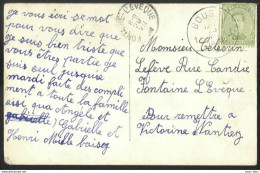 je vous écri se mot
pour vous dire que
je suis bien triste que
vous être partie je
suis seul jusque
mardi faite des complé
ment a toute la famille
assi qua Angèle et
gabrielle Gabrielle et
Henri Mille baisez
L'EVEQUE
Monsieur Célesin
Lefève Rue Candie
Fontaine L'Evêque
Pour remettre a
Victorine Nantiez